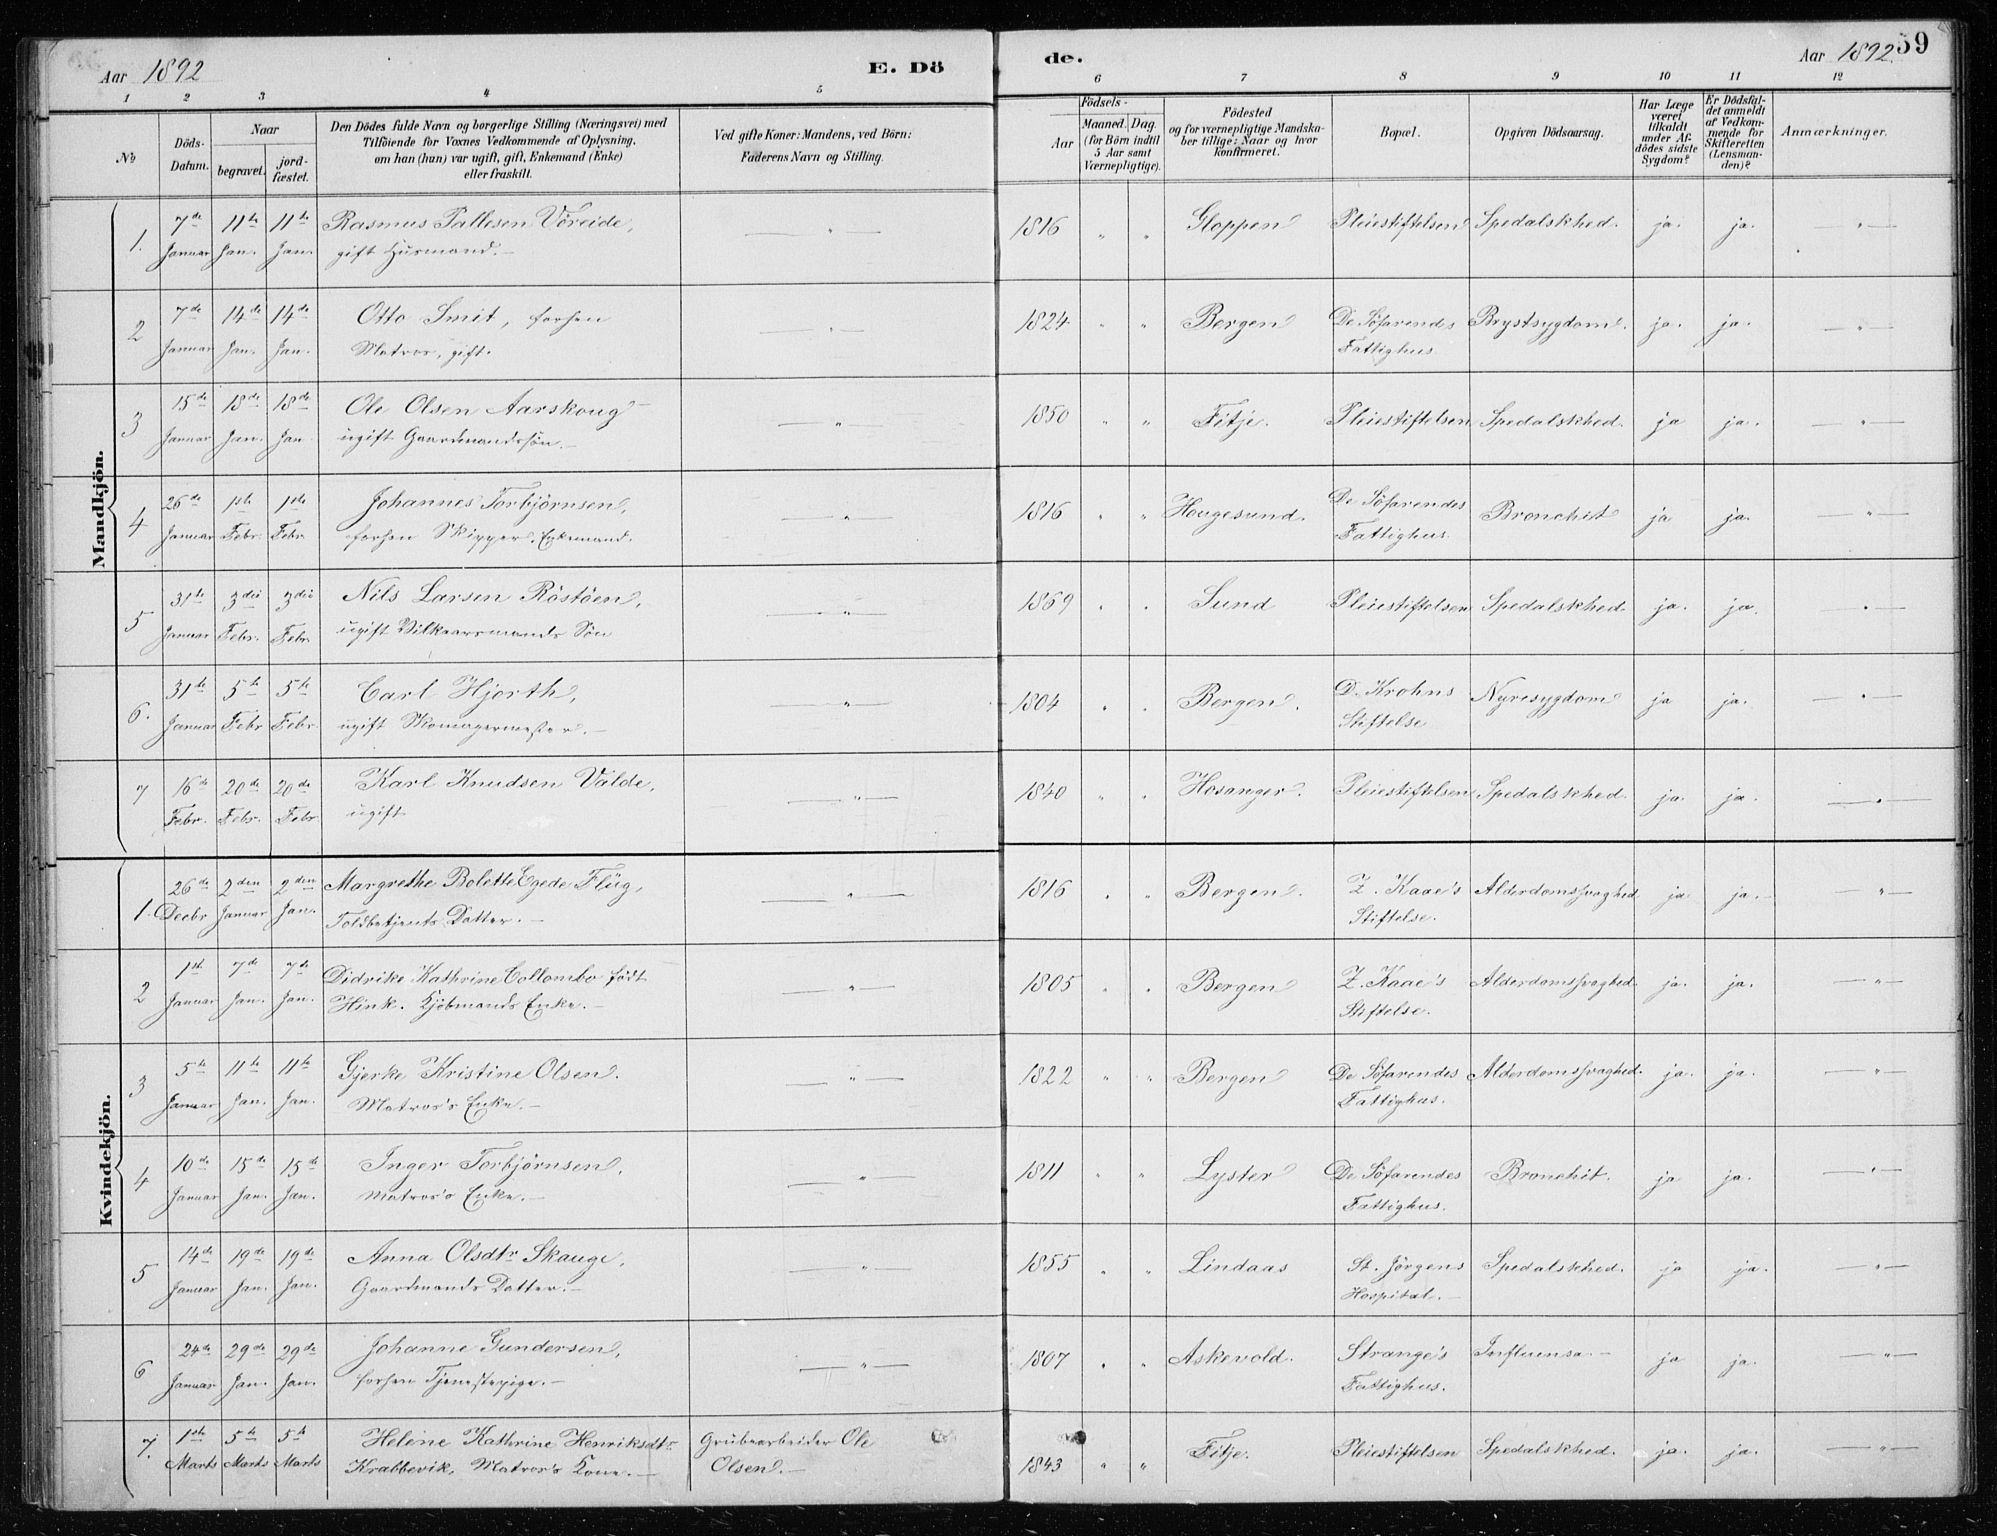 Aar 1892 E. Dö de. Aar 1892. 59
1 2 3 4 5 6 7 8 9 10 11 12
No
Döds-Datum.
Naar
begravet.
jord-fæstet.
Den Dödes fulde Navn og borgerlige Stilling (Næringsvei) med
Tilföiende for Voxnes Vedkommende af Oplysning,
om han (hun) var ugift, gift, Enkemand (Enke)
eller fraskilt.
Ved gifte Koner: Mandens, ved Börn:
Faderens Navn og Stilling.
Födsels-
Aar
Maaned. Dag.
(for Börn indtil
5 Aar samt
Værnepligtige).
Födested
og for værnepligtige Mandska-
ber tillige: Naar og hvor
konfirmeret.
Bopæl.
Opgiven Dödsaarsag.
Har Læge
været
tilkaldt
under Af-
dödes sidste
Sygdom?
Er Dödsfal-
det anmeldt
af Vedkom-
mende for
Skifteretten
(Lensman-
den)?
Anmærkninger.
Mandkjön.
1. 7de 11te 11te Rasmus Pallesen Vöreide, — " — 1816 " " Gloppen Pleiestiftelsen Spedalskhed. ja. ja. — " —
Januar Jan. Jan. gift Husmand. —
2 7de 14de 14de Otto Smit, forhen — " — 1824 " " Bergen De Söfarendes Brystsygdom. ja. ja. — " —
Januar Jan. Jan. Matros, gift. Fattighus
3 15de 18de 18de Ole Olsen Aarskoug — — " — 1850 " " Fitje. Pleiestiftelsen Spedalskhed. ja ja. — " —
Januar Jan. Jan. ugift Gaardmandssön. —
4 26de 1ste 1ste Johannes Torbjörnsen, — " — 1816 " " Hougesund. De Söfarendes Bronchit ja ja. — " —
Januar Febr. Febr. forhen Skipper, Enkemand. Fattighus.
5 31te 3die 3die Nils Larsen Röstöen, — " — 1869 " " Sund Pleiestiftelsen Spedalskhed. ja. ja. — " —
Januar Febr. Febr. ugift Vilkaarsmands Sön
6. 31te 5te 5te Carl Hjorth, — " — 1804 " " Bergen. D. Krohns Nyresygdom ja ja. — " —
Januar Febr Febr. ugift Skomagermester. — Stiftelse
7 16de 20de 20de Karl Knudsen Valde, — " — 1840 " " Hosanger. Pleiestiftelsen Spedalskhed. ja. ja. — " —
Febr. Febr. Febr ugift
Kvindekjön.
1. 26de 2den 2den Margrethe Bolette Egede Flüg, — " — 1816 " " Bergen. Z. Kaae's Alderdomssvaghed ja. ja. — — " —
Decbr Januar Jan. Toldbetjents Datter. — Stiftelse.
2 1ste 7de 7de Didrike Kathrine Collombo födt — " — 1805 " " Bergen Z. Kaae's Alderdomssvaghed. ja. ja. — " —
Januar Jan. Jan. Hink. Kjöbmands Enke. — Stiftelse.
3 5te 11te 11te Gjerke Kristine Olsen. — " — 1822 " " Bergen De Söfarendes Alderdomssvaghed. ja. ja. — " —
Januar Jan. Jan. Matros's Enke. — Fattighus.
4 10de 15de 15de Inger Torbjörnsen, — " — 1811 " " Lyster De Söfarendes Bronchit. ja ja. — " —
Januar Jan. Jan. Matros's Enke. — Fattighus.
5 14de 19de 19de Anna Olsdtr Skauge, — " — 1855 " " Lindaas St. Jörgens Spedalskhed. ja ja. — " —
Januar Jan. Jan. Gaardmands Datter. — Hospital. —
6 24de 29de 29de Johanne Gundersen, — " — 1807 " " Askevold. Strange's Influensa. — ja ja. — " —
Januar Jan. Jan. forhen Tjenestepige. — Fattighus.
7. 1ste 5te 5te Helene Kathrine Henriksdtr Grübearbeider Ole 1843 " " Fitje. Pleiestiftelsen Spedalskhed. ja. ja. — " —
Marts Marts Marts Krabbevik, Matros's Kone. — Olsen. —